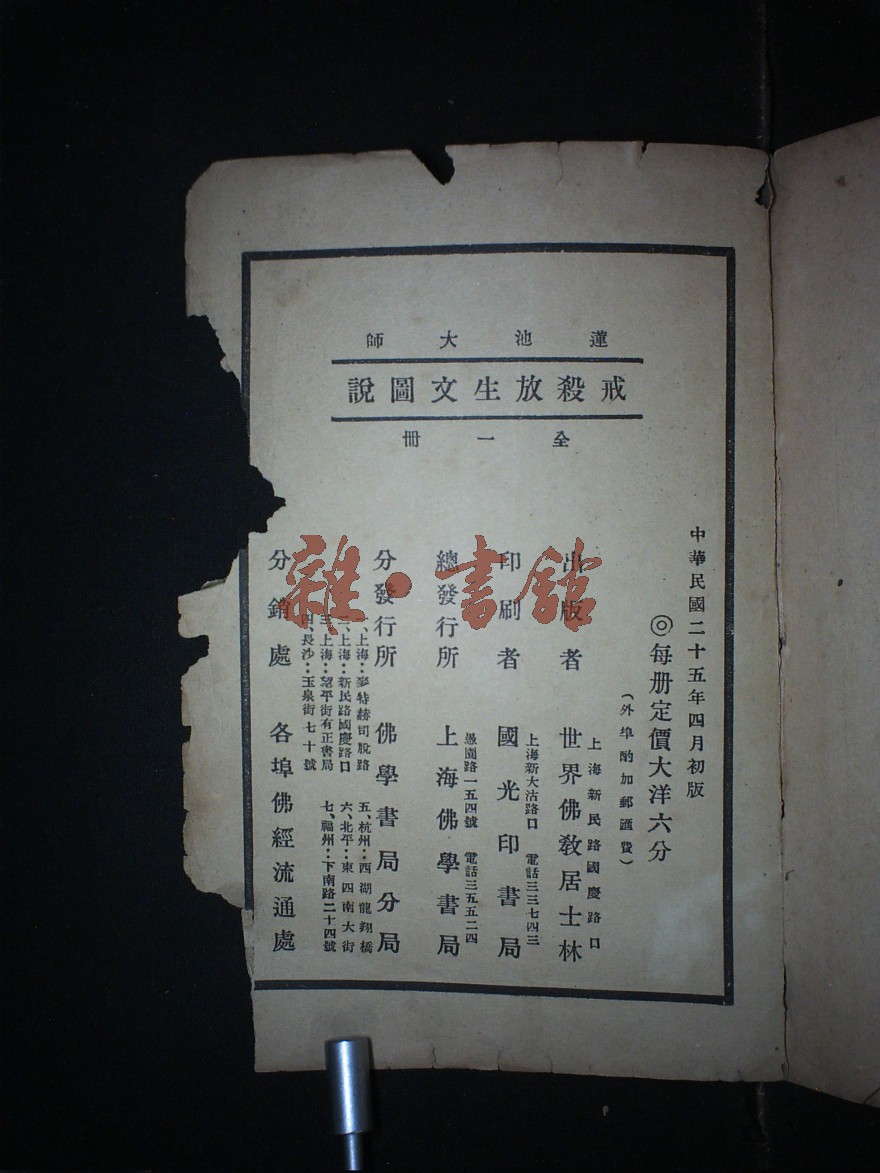 蓮池大師
戒殺放生文圖說
全一冊
中華民國二十五年四月初版
◎每册定價大洋六分
(外埠酌加郵匯費)
上海新民路國慶路口
出版者 世界佛敎居士林
上海新大沽路口 電話三三七四三
印刷者 國光印書局
愚園路一五四號 電話三五五二四
總發行所 上海佛學書局
分發行所 佛學書局分局
一、上海：麥特赫司脫路
二、上海：新民路國慶路口
三、上海：望平街有正書局
四、長沙：玉泉街七十號
五、杭州：西湖龍翔橋
六、北平：東四南大街
七、福州：下南路二十四號
分銷處 各埠佛經流通處
雜·書館